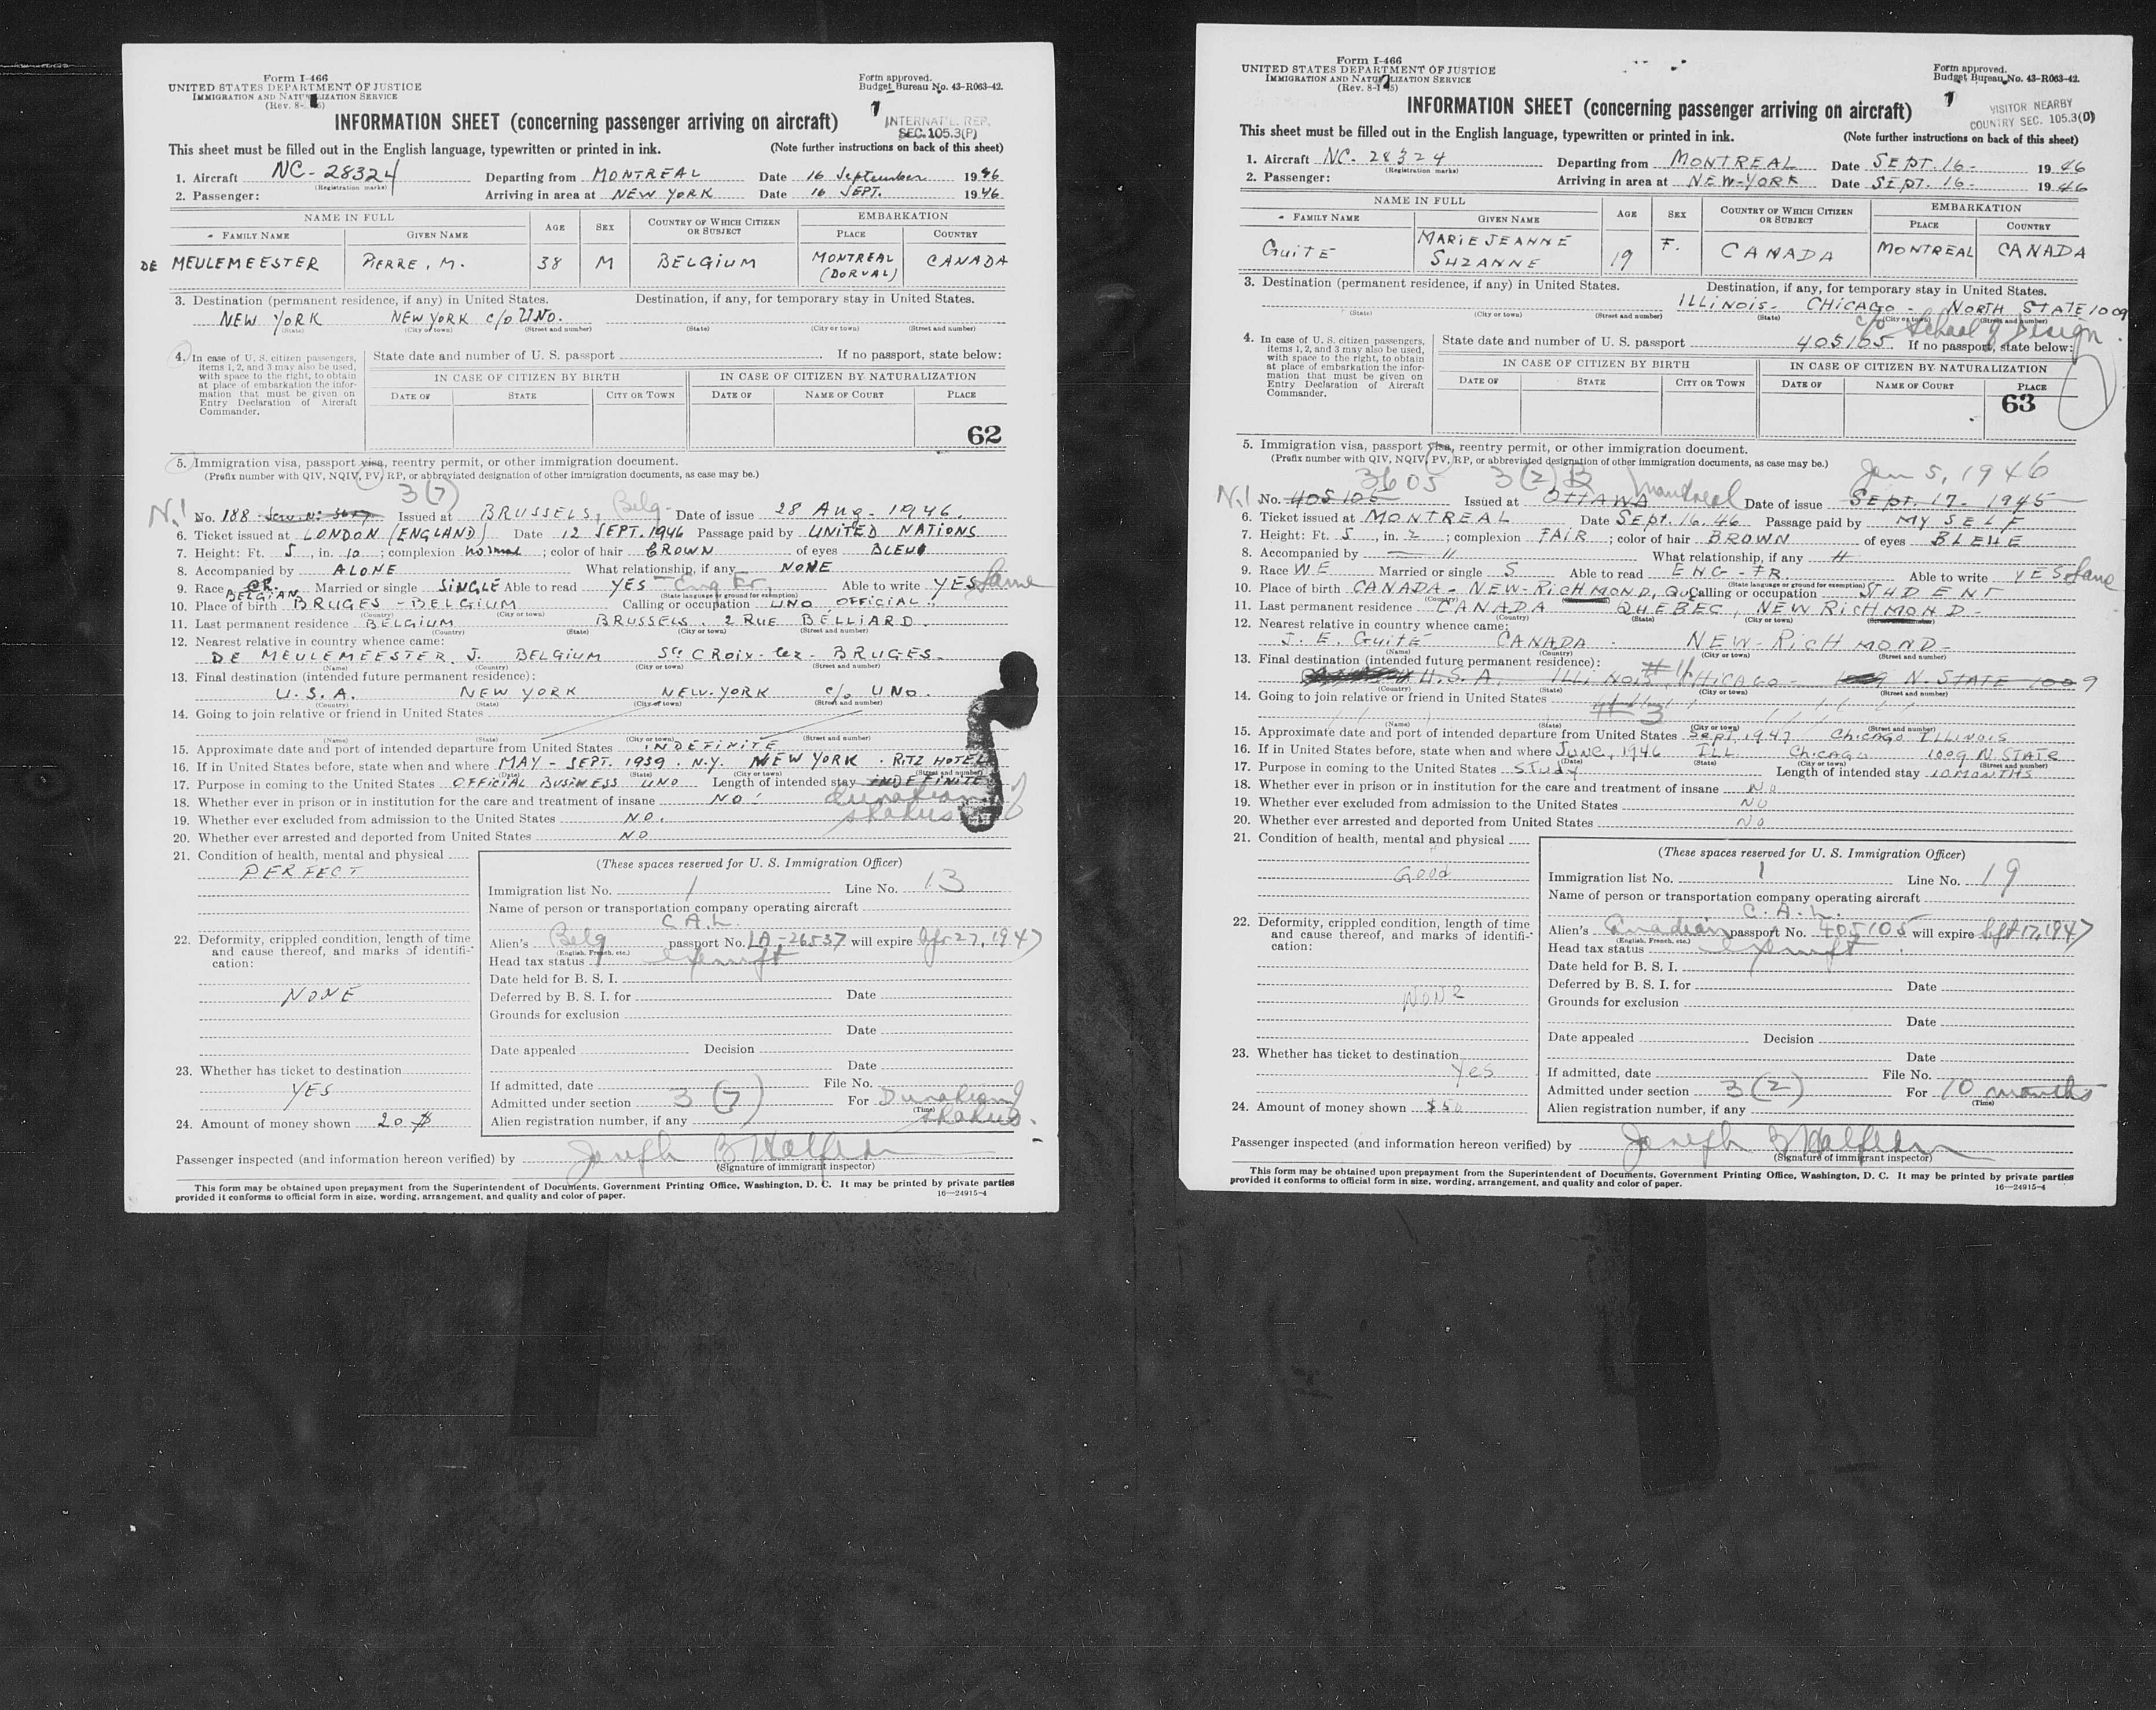 Form I-466
UNITED STATES DEPARTMENT OF JUSTICE
IMMIGRATION AND NATURALIZATION SERVICE
(Rev. 8-
Form approved.
Budget Bureau No. 43-R063-42.
INFORMATION SHEET (concerning passenger arriving on aircraft)
INTERNAT'L. REP.
SEC. 105.3(P)
This sheet must be filled out in the English language, typewritten or printed in ink. (Note further instructions on back of this sheet)
1. Aircraft NC-28324 Departing from MONTREAL Date 16 September 1946
(Registration marks)
2. Passenger: Arriving in area at NEW YORK Date 16 SEPT. 1946
NAME IN FULL AGE SEX COUNTRY OF WHICH CITIZEN OR SUBJECT EMBARKATION
FAMILY NAME GIVEN NAME PLACE COUNTRY
DE MEULEMEESTER PIERRE, M. 38 M BELGIUM MONTREAL (DORVAL) CANADA
3. Destination (permanent residence, if any) in United States. Destination, if any, for temporary stay in United States.
NEW YORK NEW YORK c/o UNO.
(State) (City or town) (Street and number) (State) (City or town) (Street and number)
4. In case of U. S. citizen passengers, items 1, 2, and 3 may also be used, with space to the right, to obtain at place of embarkation the information that must be given on Entry Declaration of Aircraft Commander.
State date and number of U. S. passport If no passport, state below:
IN CASE OF CITIZEN BY BIRTH IN CASE OF CITIZEN BY NATURALIZATION
DATE OF STATE CITY OR TOWN DATE OF NAME OF COURT PLACE
62
5. Immigration visa, passport visa, reentry permit, or other immigration document.
(Prefix number with QIV, NQIV, PV, RP, or abbreviated designation of other immigration documents, as case may be.)
3(7)
N.I No. 188 Issued at BRUSSELS, Belg. Date of issue 28 Aug. 1946.
6. Ticket issued at LONDON (ENGLAND) Date 12 SEPT. 1946 Passage paid by UNITED NATIONS
7. Height: Ft. 5, in. 10; complexion normal; color of hair BROWN of eyes BLEU
8. Accompanied by ALONE What relationship, if any NONE
9. Race BELGIAN Married or single SINGLE Able to read YES - Eng Fr, Able to write YES Same
(State language or ground for exemption)
10. Place of birth BRUGES - BELGIUM Calling or occupation UNO OFFICIAL.
(Country) (City or town)
11. Last permanent residence BELGIUM BRUSSELS. 2 RUE BELLIARD.
(Country) (State) (City or town) (Street and number)
12. Nearest relative in country whence came:
DE MEULEMEESTER J. BELGIUM Ste CROIX-lez-BRUGES.
(Name) (Country) (City or town) (Street and number)
13. Final destination (intended future permanent residence):
U.S.A. NEW YORK NEW-YORK c/o UNO.
(Country) (State) (City or town) (Street and number)
14. Going to join relative or friend in United States
(Name) (State) (City or town) (Street and number)
15. Approximate date and port of intended departure from United States INDEFINITE
16. If in United States before, state when and where MAY - SEPT. 1939. N.Y. NEW YORK. RITZ HOTEL
(Date) (State) (City or town) (Street and number)
17. Purpose in coming to the United States OFFICIAL BUSINESS UNO Length of intended stay INDEFINITE
duration of status
18. Whether ever in prison or in institution for the care and treatment of insane NO.
19. Whether ever excluded from admission to the United States NO.
20. Whether ever arrested and deported from United States NO
21. Condition of health, mental and physical
PERFECT
22. Deformity, crippled condition, length of time and cause thereof, and marks of identification:
NONE
23. Whether has ticket to destination
YES
24. Amount of money shown 20 $
(These spaces reserved for U. S. Immigration Officer)
Immigration list No. 1 Line No. 13
Name of person or transportation company operating aircraft
C.A.L.
Alien's Belg passport No. LA-26537 will expire Apr 27, 1947
(English, French, etc.)
Head tax status exempt
Date held for B. S. I.
Deferred by B. S. I. for Date
Grounds for exclusion
Date
Date appealed Decision
Date
If admitted, date File No.
Admitted under section 3(7) For Duration of status
(Time)
Alien registration number, if any
Passenger inspected (and information hereon verified) by Joseph B Halfern
(Signature of immigrant inspector)
This form may be obtained upon prepayment from the Superintendent of Documents, Government Printing Office, Washington, D. C. It may be printed by private parties
provided it conforms to official form in size, wording, arrangement, and quality and color of paper. 16—24915-4
Form I-466
UNITED STATES DEPARTMENT OF JUSTICE
IMMIGRATION AND NATURALIZATION SERVICE
(Rev. 8-1-45)
Form approved.
Budget Bureau No. 43-R063-42.
INFORMATION SHEET (concerning passenger arriving on aircraft)
VISITOR NEARBY
COUNTRY SEC. 105.3(D)
This sheet must be filled out in the English language, typewritten or printed in ink. (Note further instructions on back of this sheet)
1. Aircraft NC-28324 Departing from MONTREAL Date SEPT. 16- 1946
(Registration marks)
2. Passenger: Arriving in area at NEW-YORK Date SEPT. 16- 1946
NAME IN FULL AGE SEX COUNTRY OF WHICH CITIZEN OR SUBJECT EMBARKATION
FAMILY NAME GIVEN NAME PLACE COUNTRY
GUITÉ MARIE JEANNE SUZANNE 19 F. CANADA MONTREAL CANADA
3. Destination (permanent residence, if any) in United States. Destination, if any, for temporary stay in United States.
ILLINOIS- CHICAGO- NORTH STATE 1009
(State) (City or town) (Street and number) (State) (City or town) (Street and number)
c/o School of Design
4. In case of U. S. citizen passengers, items 1, 2, and 3 may also be used, with space to the right, to obtain at place of embarkation the information that must be given on Entry Declaration of Aircraft Commander.
State date and number of U. S. passport 405105. If no passport, state below:
IN CASE OF CITIZEN BY BIRTH IN CASE OF CITIZEN BY NATURALIZATION
DATE OF STATE CITY OR TOWN DATE OF NAME OF COURT PLACE
63
5. Immigration visa, passport visa, reentry permit, or other immigration document.
(Prefix number with QIV, NQIV, PV, RP, or abbreviated designation of other immigration documents, as case may be.)
3605 3(2) B Jan 5, 1946
N.I No. 405105 Issued at OTTAWA Montreal Date of issue SEPT. 17- 1945
6. Ticket issued at MONTREAL Date SEPT. 16. 46 Passage paid by MY SELF
7. Height: Ft. 5, in. 2; complexion FAIR; color of hair BROWN of eyes BLEUE
8. Accompanied by What relationship, if any
9. Race WE Married or single S Able to read ENG-FR Able to write YES Same
(State language or ground for exemption)
10. Place of birth CANADA- NEW-RICHMOND, QU Calling or occupation STUDENT
(Country)
11. Last permanent residence CANADA QUEBEC, NEW RICHMOND-
(Country) (State) (City or town) (Street and number)
12. Nearest relative in country whence came:
J. E. GUITÉ CANADA - NEW-RICHMOND-
(Name) (Country) (City or town) (Street and number)
13. Final destination (intended future permanent residence):
U.S.A. ILLINOIS, CHICAGO- N. STATE 1009
(Country) (State) (City or town) (Street and number)
14. Going to join relative or friend in United States
(Name) (State) (City or town) (Street and number)
15. Approximate date and port of intended departure from United States Sept 1947 Chicago ILLINOIS
16. If in United States before, state when and where June, 1946 ILL. Chicago 1009 N. STATE
(Date) (State) (City or town) (Street and number)
17. Purpose in coming to the United States Study Length of intended stay 10 MONTHS
18. Whether ever in prison or in institution for the care and treatment of insane NO
19. Whether ever excluded from admission to the United States NO
20. Whether ever arrested and deported from United States NO
21. Condition of health, mental and physical
Good
22. Deformity, crippled condition, length of time and cause thereof, and marks of identification:
None
23. Whether has ticket to destination
Yes
24. Amount of money shown $50
(These spaces reserved for U. S. Immigration Officer)
Immigration list No. 1 Line No. 19
Name of person or transportation company operating aircraft
C.A.L.
Alien's Canadian passport No. 405105 will expire Sept 17, 1947
(English, French, etc.)
Head tax status exempt
Date held for B. S. I.
Deferred by B. S. I. for Date
Grounds for exclusion
Date
Date appealed Decision
Date
If admitted, date File No.
Admitted under section 3(2) For 10 months
(Time)
Alien registration number, if any
Passenger inspected (and information hereon verified) by Joseph B Halfern
(Signature of immigrant inspector)
This form may be obtained upon prepayment from the Superintendent of Documents, Government Printing Office, Washington, D. C. It may be printed by private parties
provided it conforms to official form in size, wording, arrangement, and quality and color of paper. 16—24915-4